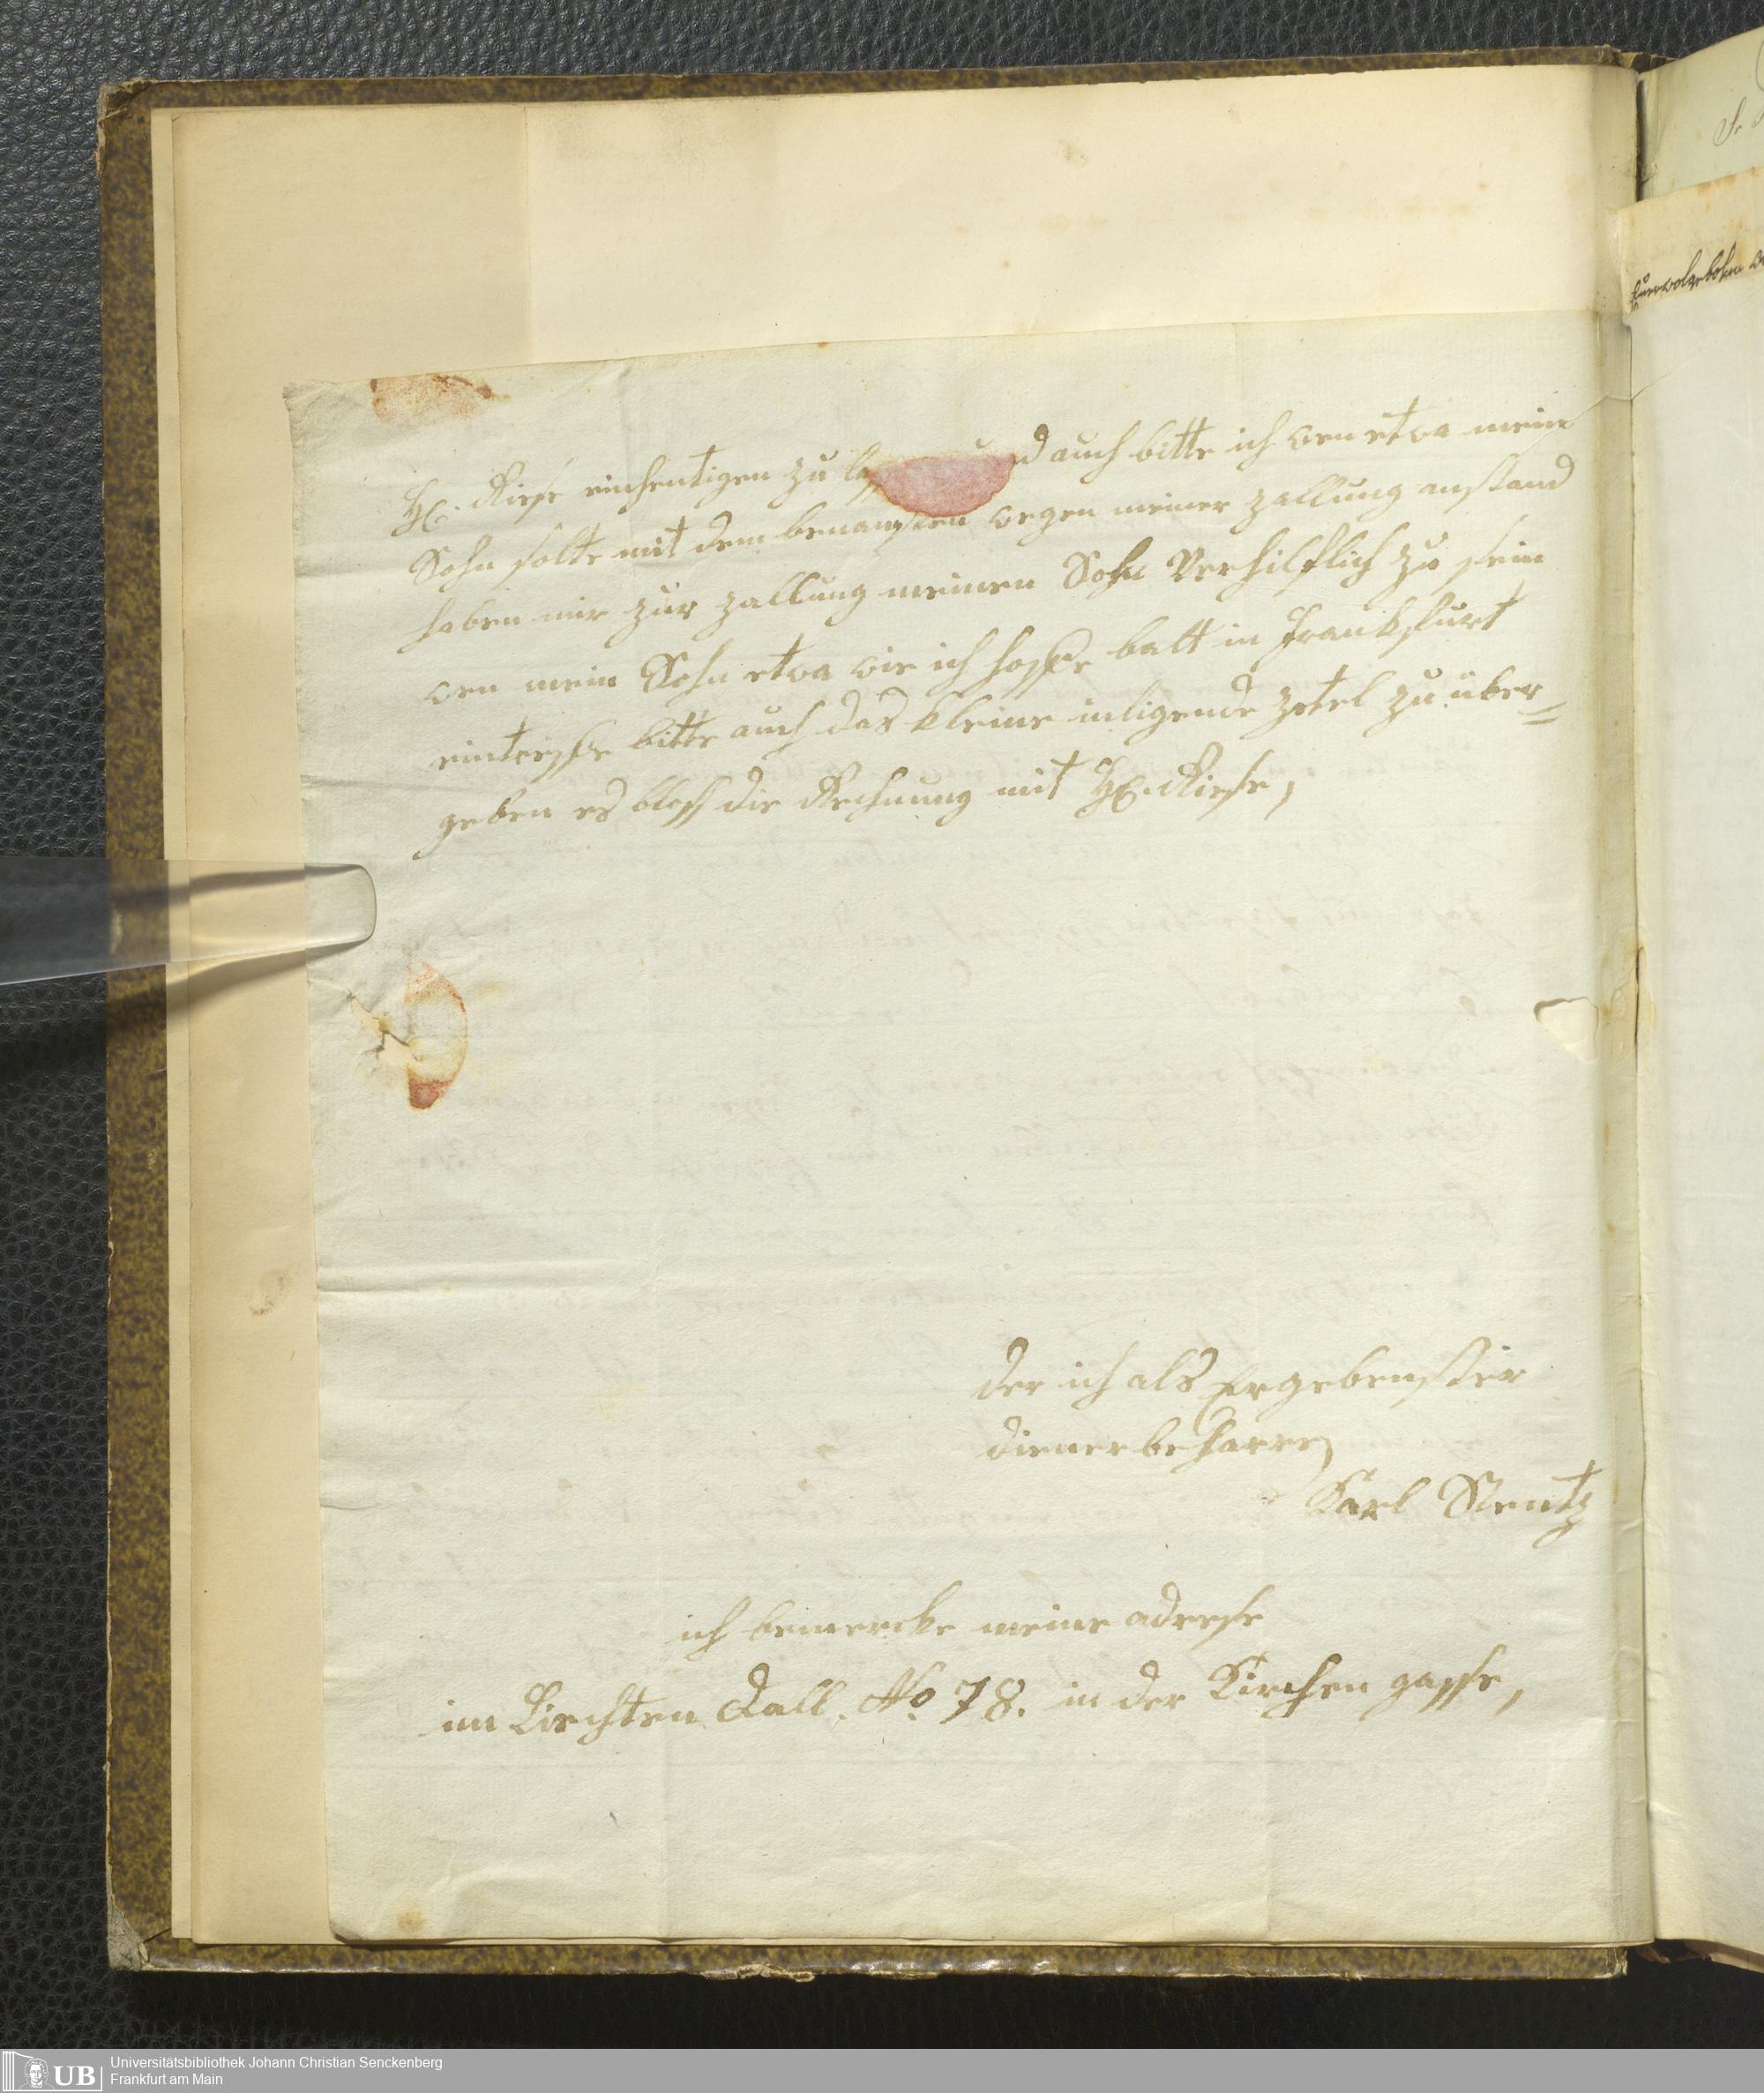 H. Riese einhentigen zu und auch bitte ich wen etwa mein
Sohn solte mit dem benansten wegen meiner zallung anstand
haben mir zur zallung meinen Sohn Verhilflich zu sein
wen mein Sohn etwa wie ich hoffe balt in Frankfurt
eintrifft bitte auch das kleine inligende zetel zu über=
geben es bloss die Rechnung mit H. Riese,
der ich als Ergebenster
diener beharre,
Karl Stentz
ich bemercke meine adresse
im Liechten Dall. No 78. in der Kirchen gasse,
UB
Universitätsbibliothek Johann Christian Senckenberg
Frankfurt am Main